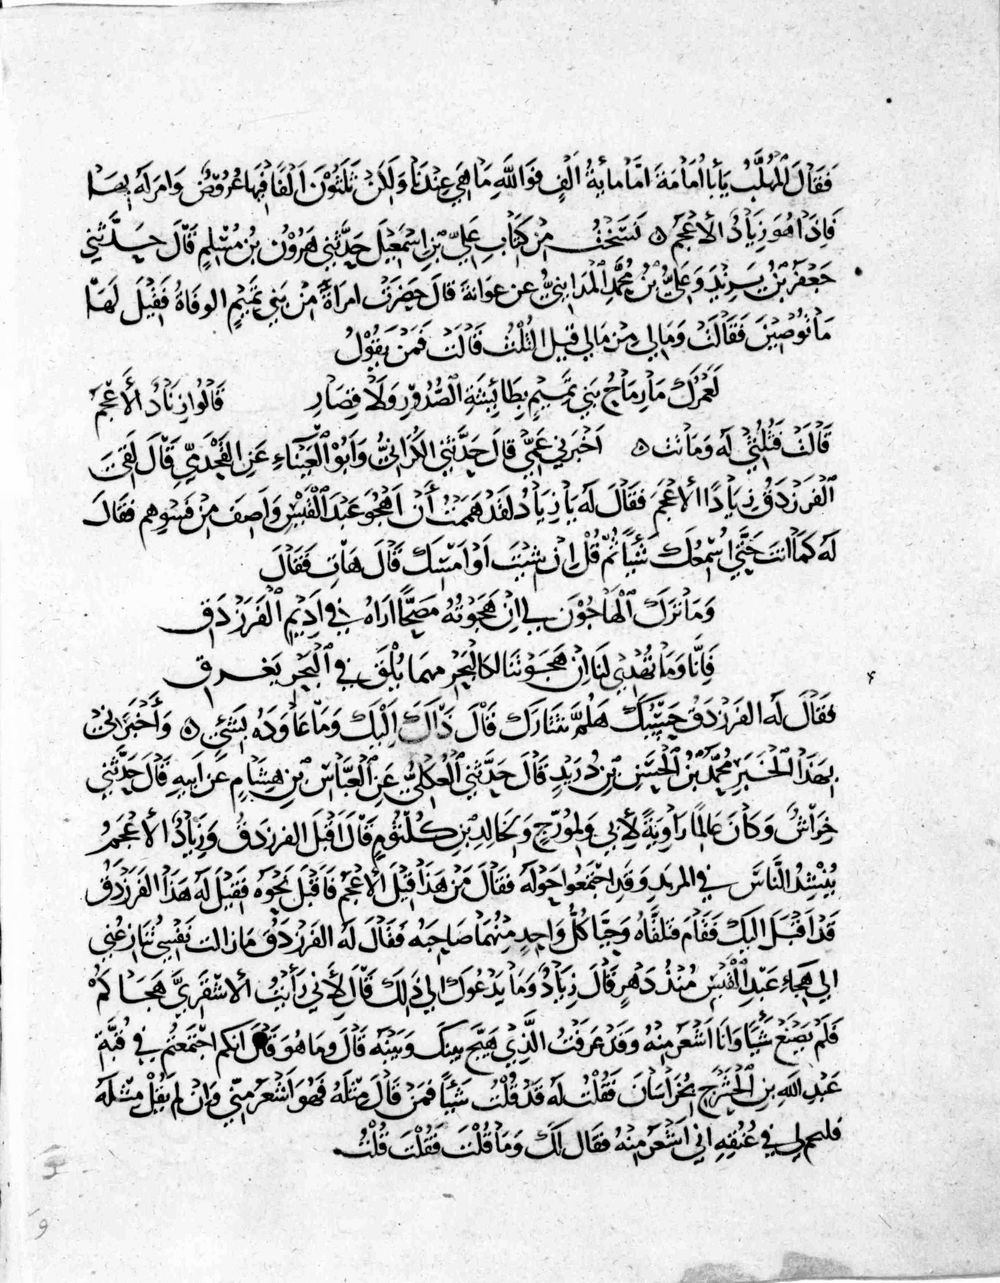 فَقَالَ المُهَلَّبُ يَا بَا أُمَامَةَ امَّا مايةُ الْفٍ فوَاللَّهِ مَا هِيَ عِنْدَنَا وَلَكِنْ ثَلَثُوْنَ الْفًا فِيْهَا عُرُوْضٌ وَامَرَ لَهُ بِهَا
فَاِذَا هُوَ زِيَادُ الأَعْجَمُ ه نَسَخْتُ مِنْ كِتَابِ عَلِيِّ بْنِ اسْمَعِيْلَ حَدَّثَنِي هَرُوْنُ بْنُ مُسْلِمٍ قَالَ حَدَّثَنِي
جَعْفَرُ بْنُ يَزِيْدَ وَعَلِيُّ بْنُ مُحَمَّدِ المَدَاينِيُّ عن عوَانةَ قالَ حَضَرَتْ امرَاةً مِنْ بَنِي تَمِيْمٍ الوفَاةُ فَقِيْلَ لَهَا
مَا تُوْصِيْنَ فَقَالَتْ وَمَا لِي مِنْ مَالِي قيلَ الثُّلْثُ قَالَتْ فَمَنْ يَقُوْلُ
لَعَمْرُكَ مَا رِمَاحُ بَنِي تَمِيْمٍ بِطَائِشَةِ الصُّدُوْرِ وَلَا قِصَارِ قَالُوا زِيَادٌ الأَعْجَمُ
قَالَتْ فَثُلُثِي لَهُ وَمَاتت ه اَخْبَرَنِي عَمِّي قَالَ حَدَّثَنِي الكُرَانِيُّ وَأَبُو الْعَيْنَاءِ عَنِ القَحْذَمِيِّ قَالَ لَقِيَ
الفَرَزْدَقُ زِيَادًا الأعْجَمَ فَقَالَ لَهُ يَا زِيَادُ لَقَدْ هَمَمْتُ أَنْ اَهْجُوَ عَبْدَ الْقَيْسِ وَاَصِفَ مِنْ فَسْوِهِم فقَالَ
لَهُ كَمَا انتَ حَتَّى اُسْمِعَكَ شَيْأً ثُمَّ قُلْ اِنْ شِئتَ اَوْ امْسِك قَالَ هَاتِ فَقَالَ
وَمَا تَرَكَ الْهَاجُوْنَ لِي اِنْ هَجَوْتُهُ مَصَحًّا ارَاهُ فِي اَدِيْمِ الْفَرَزْدَقِ
فَاِنَّا وَمَا تُهْدِي لَنَا اِنْ هَجَوْتَنَا لكَا لْبَحْرِ مهما يُلْقَ فِي الْبَحْرِ يَغْرَقِ
فقَالَ لَه الفرَزْدَقُ حَسْبُكَ هَلُمَّ نَتَتَارَك قَالَ ذَاكَ اِلَيْكَ وَمَا عَاوَدَهُ بِشَئٍ ه وَأَخْبَرَنِي
بِهَذَا الْخَبَرِ مُحَمَّدُ بْنُ الْحَسَنِ بْنِ دُرَيْدٍ قَالَ حَدَّثَنِي الْعُكْلِيُّ عَنِ الْعَبَّاسِ بْنِ هِشَامٍ عَنْ ابيهِ قَالَ حَدَّثَنِي
خِرَاشٌ وَكَانَ عَالِمًا رَاوِيَةً لِأبِي وَلِمُؤَرِّجٍ وَلخَالِدِ بْنِ كُلثُوْمٍ قَالَ اَقبَلَ الفرزدَقُ وَزِيَادٌ الأَعْجَمُ
يُنْشِدُ النَّاسَ في المربَدِ وَقدِ اجْتَمَعُوا حَوْلَهُ فقَالَ مَنْ هَذَا قيلَ الأَعْجَمُ فَاقبَلَ نَحْوَهُ فَقِيْلَ لَهُ هَذَا الفَرَزْدَقُ
قَدْ اقْبَلَ اليكَ فقَامَ فتلقَّاهُ وَحَيَّا كُلُّ وَاحِدٍ مِنْهُمَا صَاحِبَهُ فقَالَ لَهُ الفرَزْدَقُ مَا زَالت نَفْسِي تُنَازِعُنِي
الى هِجَاءِ عَبْدِ الْقَيْسِ مُنْذُ دَهرٍ قَالَ زِيَادٌ وَمَا يَدْعُوكَ الى ذَلِكَ قَالَ لِأَنِّي رَأَيْتُ الأشْقَرِيَّ هَجَاكُمْ
فَلَمْ يَصْنَعْ شَيْأً وَانَا اَشْعَرُ مِنْهُ وَقدْ عَرَفْتُ الَّذِي هَيَّجَ بينَكَ وَبَيْنَهُ قَالَ وما هُوَ قَالَ اَنكم اجْتَمَعْتُمْ في قُبَّةِ
عَبدِ اللهِ بنِ الْحَشْرَجِ بخُرَاسَانَ فَقُلتَ لَهُ قَدْ قُلْتُ شَيْأً فَمَنْ قَالَ مِثلَهُ فَهُوَ اَشْعَرُ مِنِّي وَاِنْ لَم يَقُلْ مِثْلَهُ
فلـ لي في عُنُقِهِ اِني اَشْعَرُ مِنْهُ فقَال لَكَ وَمَا قُلْتَ فَقُلْتَ قُلْتُ